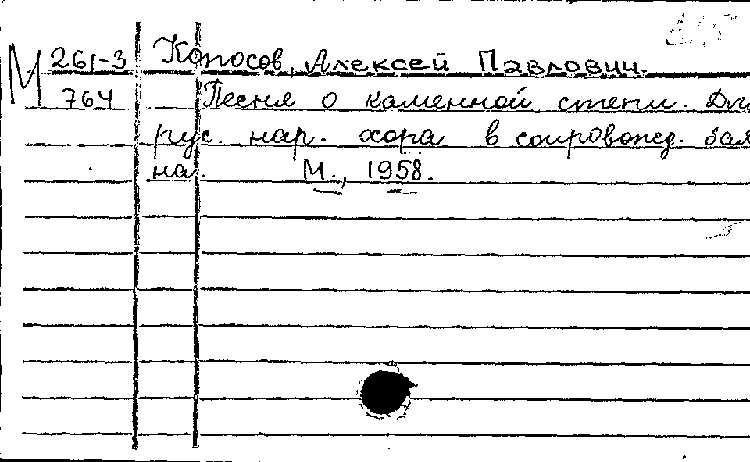 М 261-3 Копосов, Алексей Павлович.
764 Песня о каменной степи. Для
рус. нар. хора в сопровожд. бая
на. М., 1958.